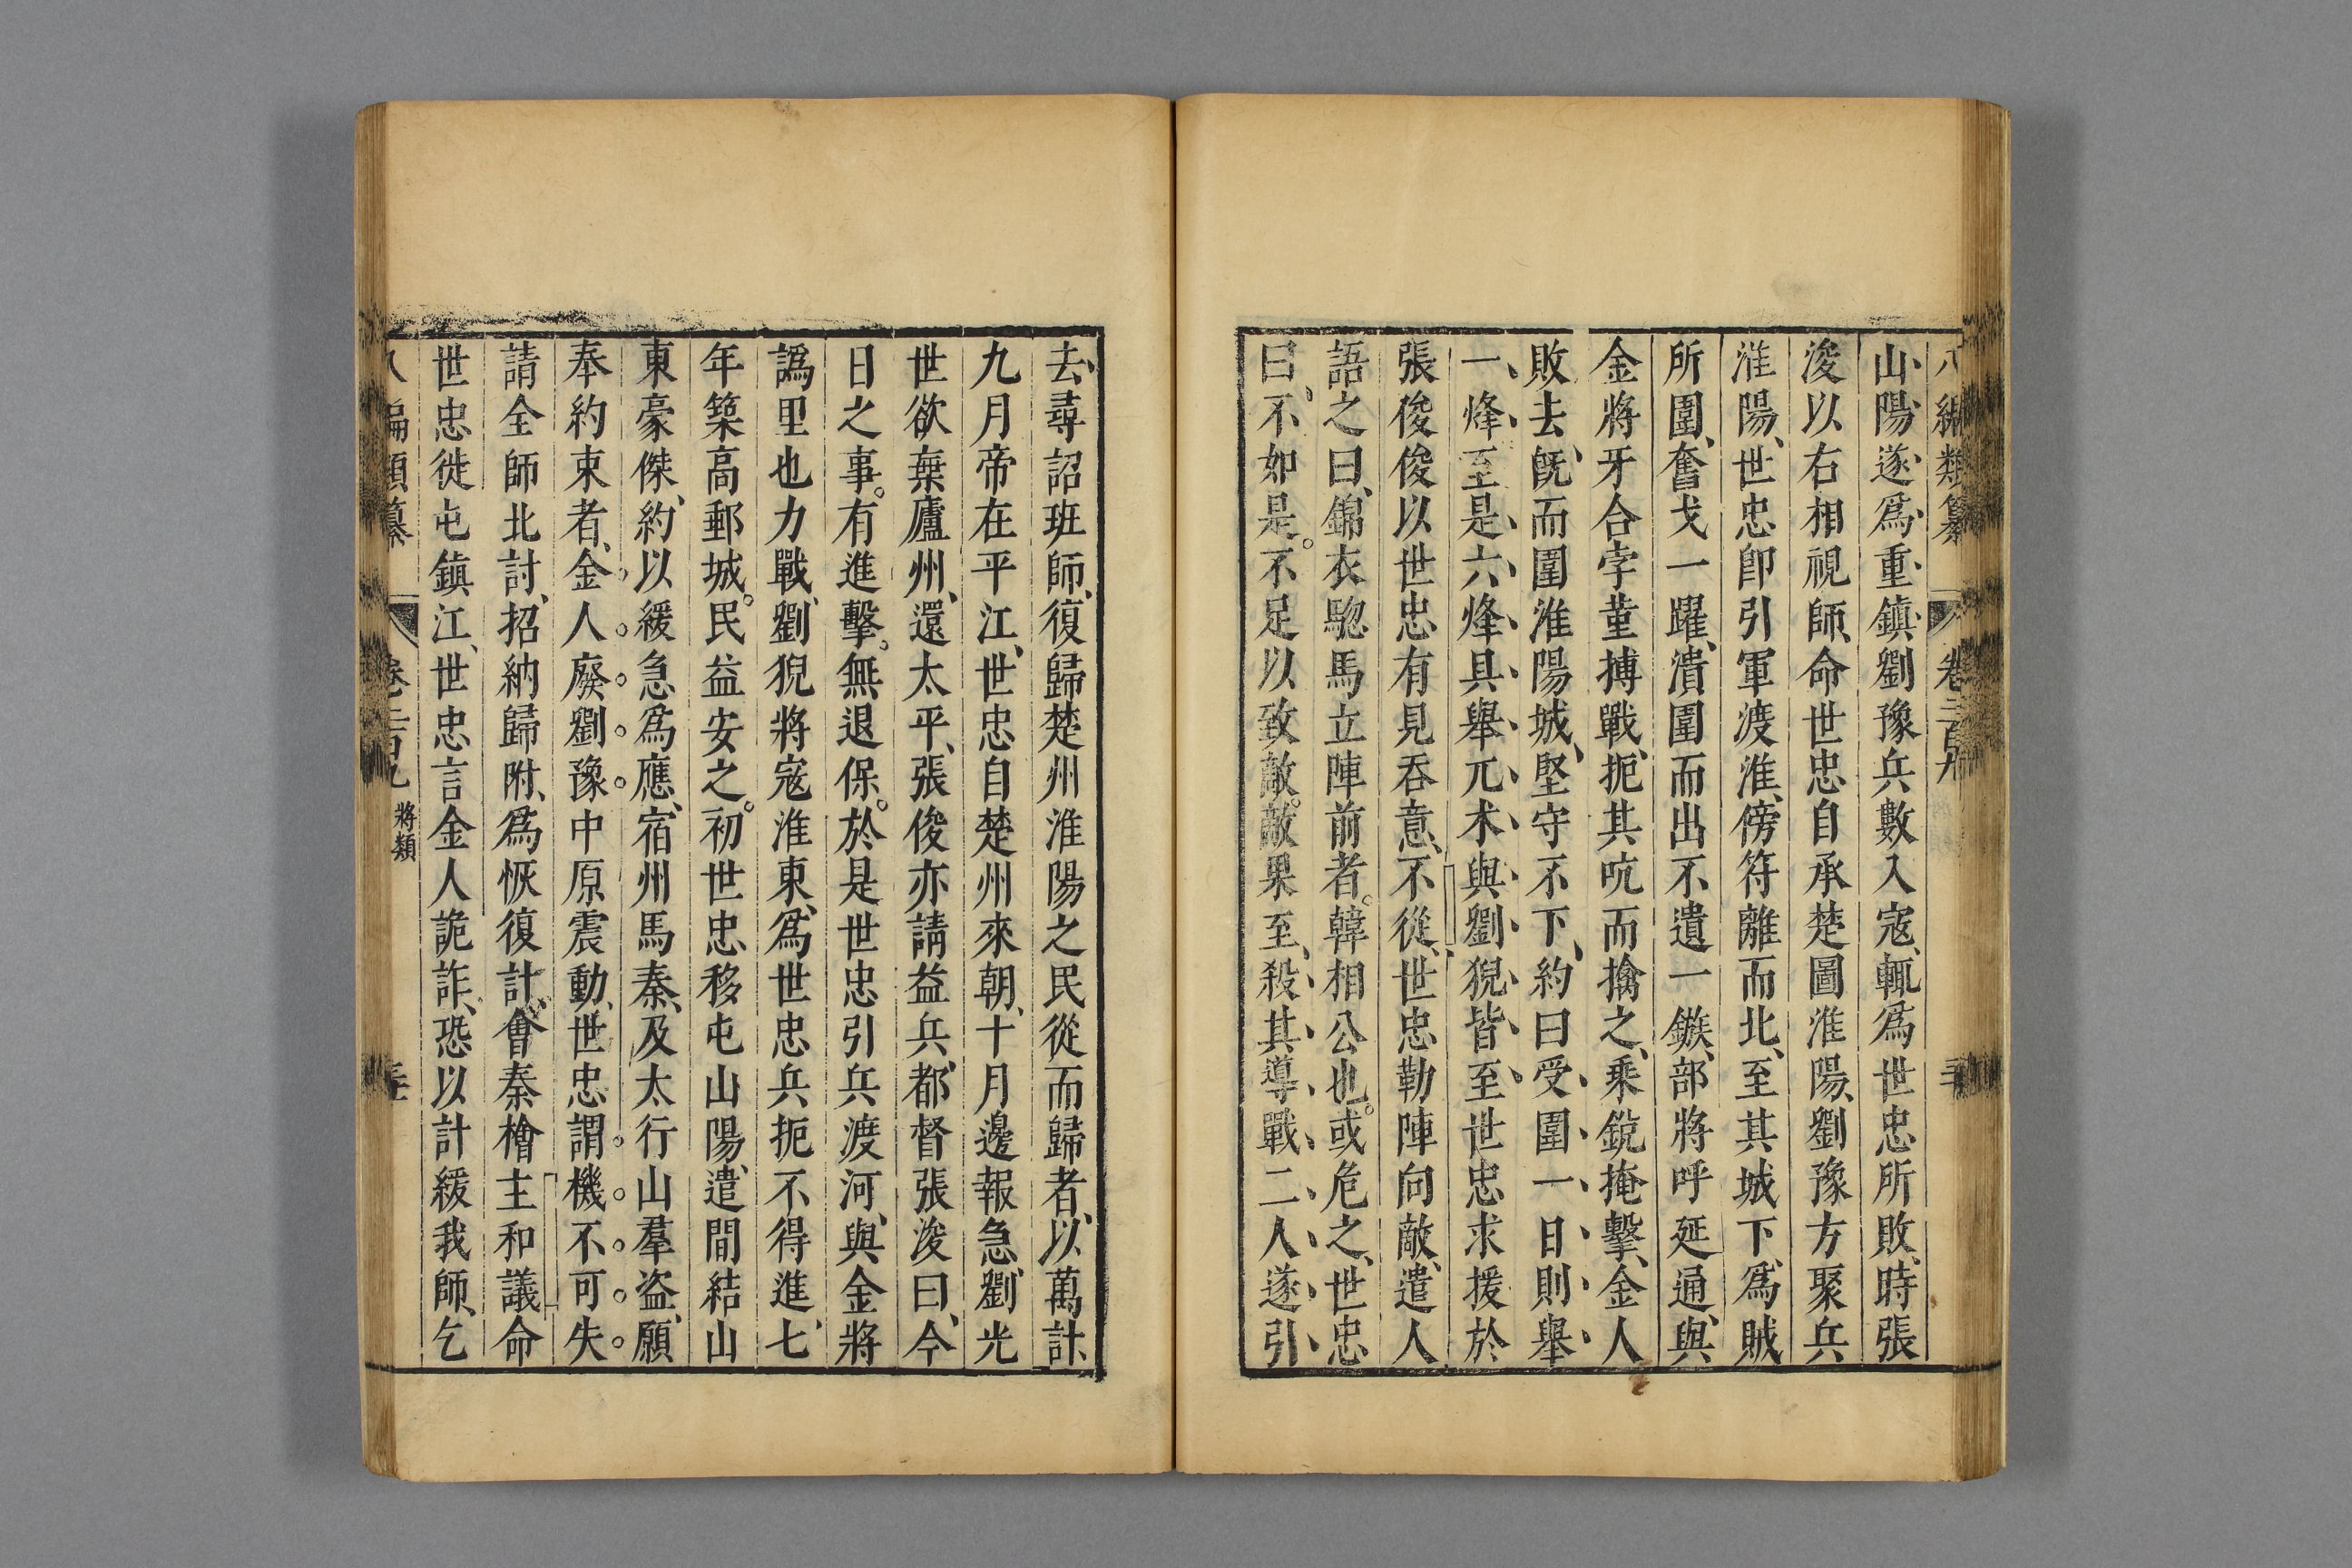 山陽、遂爲重鎮、劉豫兵數入寇、輒爲世忠所敗、時張
浚以右相視師、命世忠自承楚圖淮陽、劉豫方聚兵
淮陽、世忠卽引軍渡淮、傍符離而北、至其城下、爲賊
所圍、奮戈一躍、潰圍而出不遺一鏃、部將呼延通、與
金將牙合孛堇搏戰、扼其吭而擒之、乘銳掩擊、金人
敗去、旣而圍淮陽城、堅守不下、約曰受圍一日則舉
一烽至是六烽具舉兀朮與劉猊皆至世忠求援於
張俊俊以世忠有見吞意、不從、世忠勒陣向敵、遣人
語之曰、錦衣驄馬立陣前者。韓相公也。或危之、世忠
曰、不如是。不足以致敵。敵果至、殺其導戰二人遂引
去、尋詔班師、復歸楚州淮陽之民從而歸者、以萬計、
九月帝在平江、世忠自楚州來朝、十月邊報急、劉光
世欲棄廬州、還太平、張俊亦請益兵、都督張浚曰、今
日之事。有進擊。無退保。於是世忠引兵渡河、與金將
譌里也力戰、劉猊將寇淮東、爲世忠兵扼不得進、七
年築高郵城。民益安之。初世忠移屯山陽、遣間結山
東豪傑、約以緩急爲應、宿州馬秦、及太行山羣盜、願
奉約束者、金人廢劉豫中原震動、世忠謂機不可失
請全師北討、招納歸附、爲恢復計、會秦檜主和議命
世忠徙屯鎮江、世忠言金人詭詐、恐以計緩我師、乞
將類